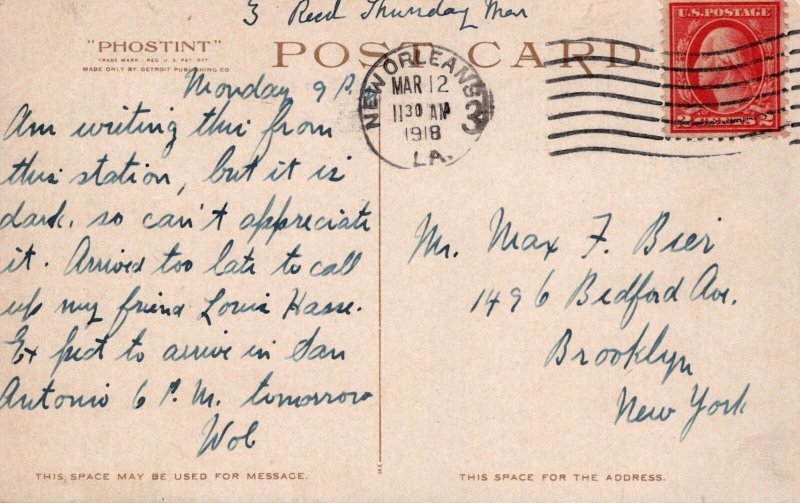 3 Recd Thursday Mar
"PHOSTINT"
TRADE MARK - REG. U.S. PAT. OFF.
MADE ONLY BY DETROIT PUBLISHING CO
POST CARD
NEW ORLEANS
MAR 12
11 30 AM
1918
LA.
3
U.S. POSTAGE
2 2
Monday 9 P.
Am writing this from
this station, but it is
dark, so can't appreciate
it. Arrived too late to call
up my friend Louis Hasse.
Expect to arrive in San
Antonio 6 P.M. tomorrow
Wob
Mr. Max F. Bier
1496 Bedford Ave.
Brooklyn
New York
THIS SPACE MAY BE USED FOR MESSAGE.
THIS SPACE FOR THE ADDRESS.